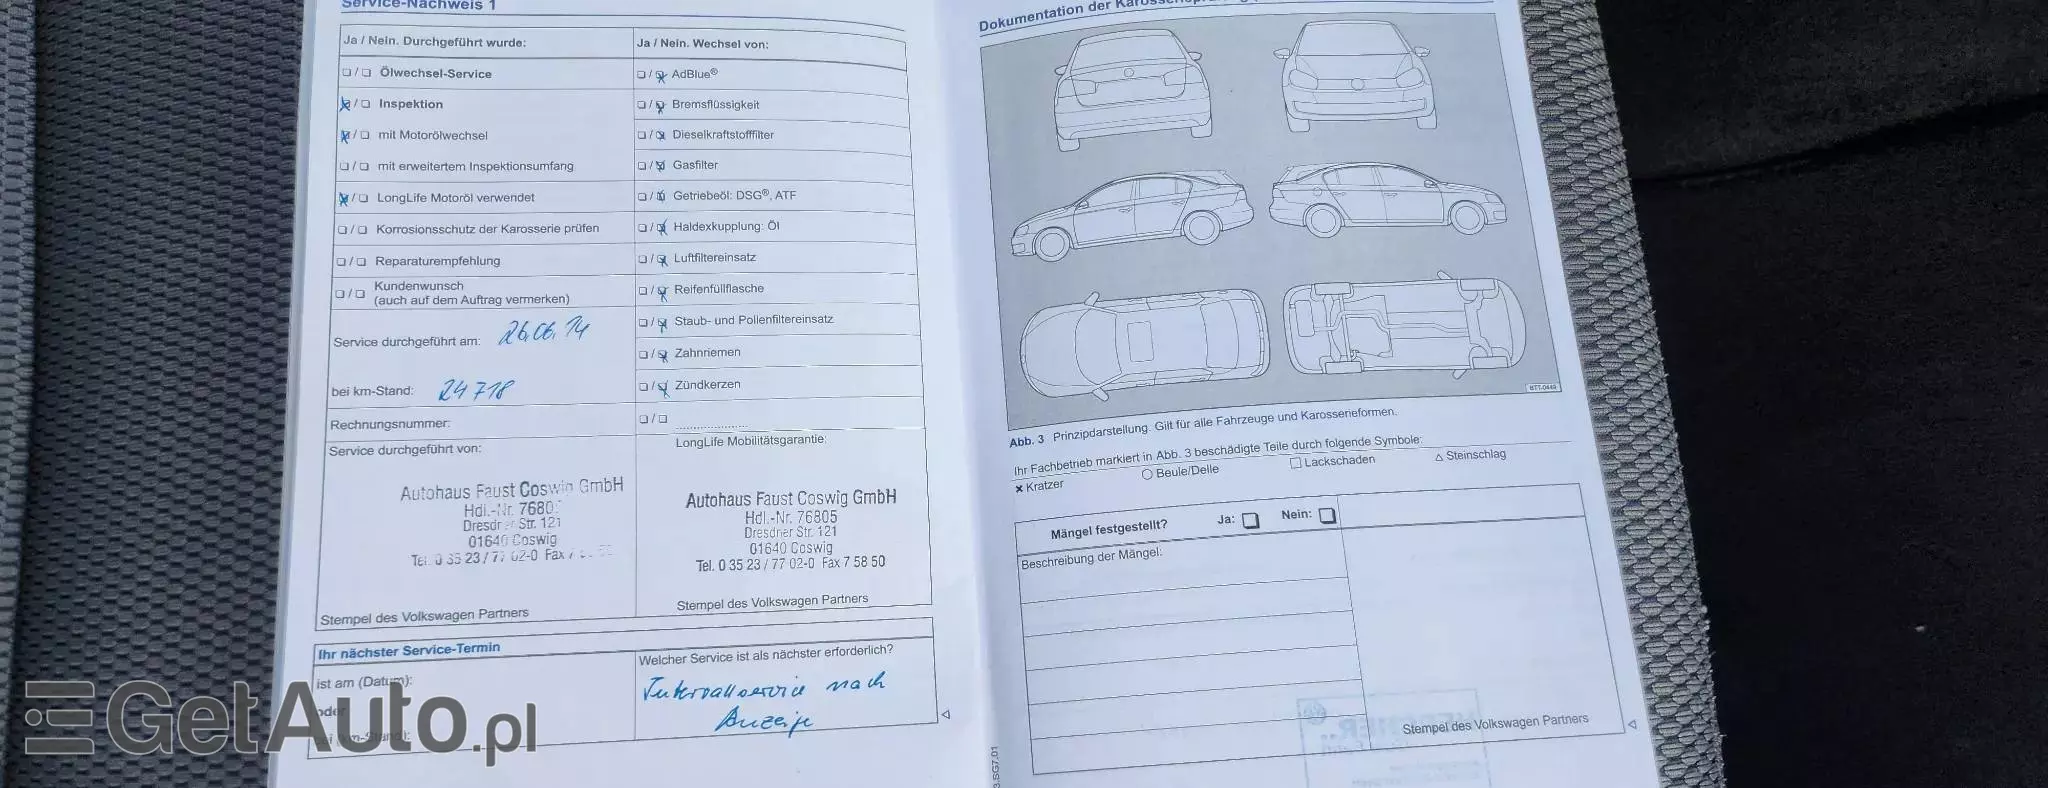 Service-Nachweis 1
Ja / Nein. Durchgeführt wurde:
Ölwechsel-Service
Inspektion
mit Motorölwechsel
mit erweitertem Inspektionsumfang
LongLife Motoröl verwendet
Korrosionsschutz der Karosserie prüfen
Reparaturempfehlung
Kundenwunsch
(auch auf dem Auftrag vermerken)
Service durchgeführt am: 26.06.14
bei km-Stand: 24718
Rechnungsnummer:
Service durchgeführt von:
Autohaus Faust Coswig GmbH
Hdl.-Nr. 7680
Dresdner Str. 121
01640 Coswig
Tel. 0 35 23 / 77 02-0 Fax 7
Stempel des Volkswagen Partners
Ja / Nein. Wechsel von:
AdBlue®
Bremsflüssigkeit
Dieselkraftstofffilter
Gasfilter
Getriebeöl: DSG®, ATF
Haldexkupplung: Öl
Luftfiltereinsatz
Reifenfüllflasche
Staub- und Pollenfiltereinsatz
Zahnriemen
Zündkerzen
LongLife Mobilitätsgarantie:
Autohaus Faust Coswig GmbH
Hdl.-Nr. 76805
Dresdner Str. 121
01640 Coswig
Tel. 0 35 23 / 77 02-0 Fax 7 58 50
Stempel des Volkswagen Partners
Ihr nächster Service-Termin
ist am (Datum):
oder
bei (km-Stand):
Welcher Service ist als nächster erforderlich?
Intervallservice nach
Anzeige
Dokumentation der
BTT-0449
Abb. 3 Prinzipdarstellung. Gilt für alle Fahrzeuge und Karosserieformen.
Ihr Fachbetrieb markiert in Abb. 3 beschädigte Teile durch folgende Symbole:
Kratzer Beule/Delle Lackschaden Steinschlag
Mängel festgestellt? Ja: Nein:
Beschreibung der Mängel:
Stempel des Volkswagen Partners
GetAuto.pl